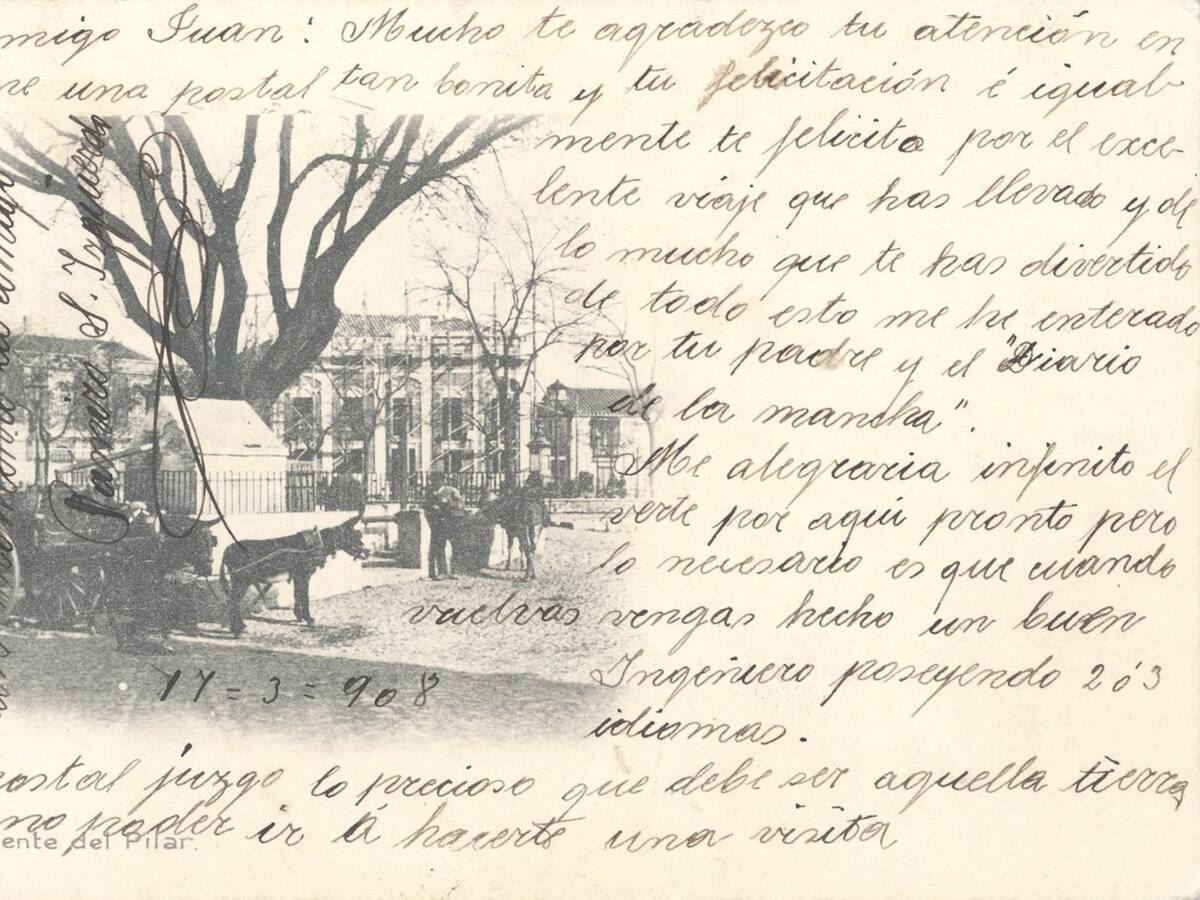 migo Juan: Mucho te agradezco tu atención en
me una postal tan bonita y tu felicitación é igual-
mente te felicito por el exce-
lente viaje que has llevado y de
lo mucho que te has divertido
de todo esto me he enterado
por tu padre y el "Diario
de la mancha".
Me alegraria infinito el
verte por aqui pronto pero
lo necesario es que cuando
vuelvas vengas hecho un buen
Ingeniero poseyendo 2 ó 3
idiomas.
ostal juzgo lo precioso que debe ser aquella tierra
no poder ir á hacerte una visita
ente del Pilar.
17=3=908
S. Izquierdo